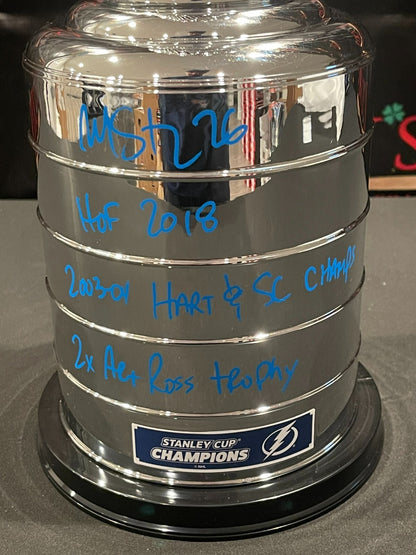 MStz 26
HOF 2018
2003-04 HART & SC CHAMPS
2x Art Ross trophy
STANLEY CUP
CHAMPIONS
© NHL